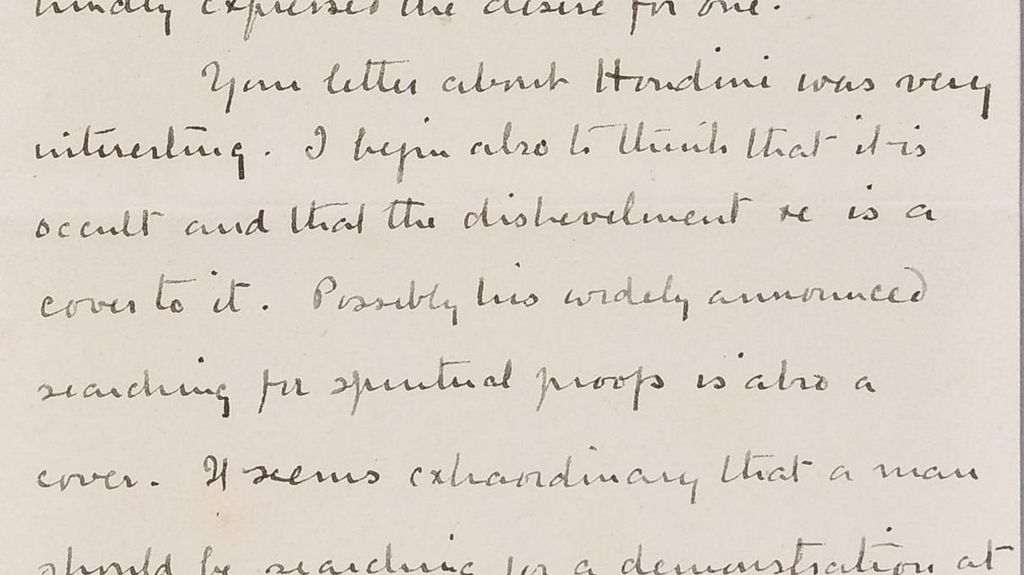 kindly expressed the desire for one.
Your letter about Houdini was very
interesting. I begin also to think that it is
occult and that the dishevelment &c is a
cover to it. Possibly his widely announced
searching for spiritual proofs is also a
cover. It seems extraordinary that a man
should be searching for a demonstration at